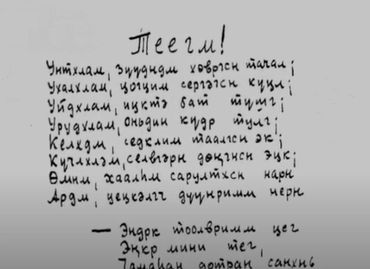 Теегм!
Унтхлам, зүүдндм хөвргсн тачал;
Ухалхлам, цогцим сергәгсн күцл;
Уйдхлам, ицктә бат түшг;
Урудхлам, оньдин күдр түлг;
Келхдм, седклим таалгсн эк;
Күчлхләм, селвгәрн дөңгнсн эцк;
Өмнм, хаалһм сарултхсн нарн
Ардм, цецкәлгч дуунримм нерн
— Эндрк тоолвримм цег
Эңкр мини тег,
дотран санхнь